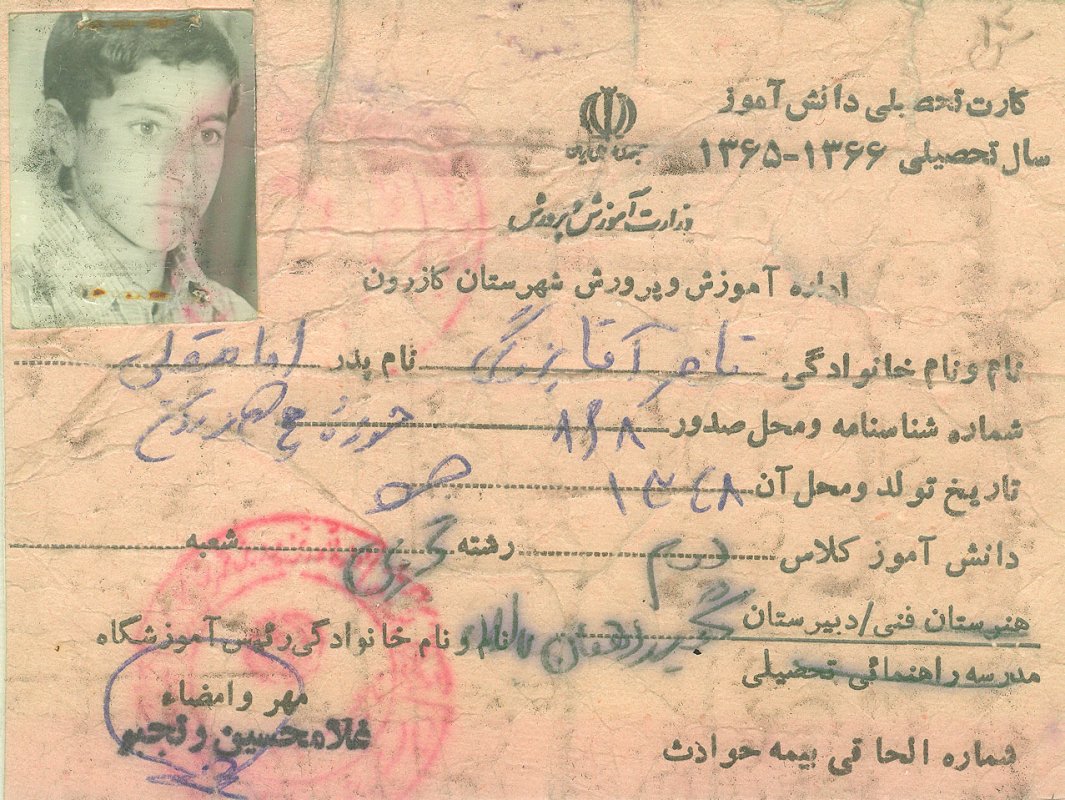 کارت تحصیلی دانش آموز
سال تحصیلی ۱۳۶۶-۱۳۶۵
جمهوری اسلامی ایران
وزارت آموزش و پرورش
اداره آموزش و پرورش شهرستان کازرون
نام و نام خانوادگی ناصر آقا بزرگی نام پدر امامقلی
شماره شناسنامه و محل صدور ۸۶۸ حوزه ۴
تاریخ تولد و محل آن ۱۳۴۸
دانش آموز کلاس دوم رشته تجربی شعبه
هنرستان فنی/دبیرستان نام و نام خانوادگی رئیس آموزشگاه
مدرسه راهنمائی تحصیلی
مهر و امضاء
غلامحسین رنجبر
شماره الحاقی بیمه حوادث